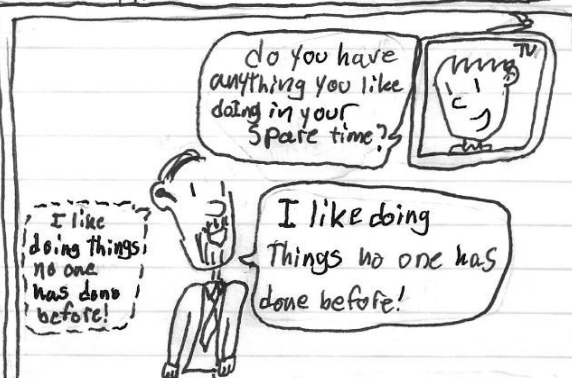 do you have
anything you like
doing in your
spare time?
TV
I like doing
things no one has
done before!
I like
doing things
no one
has done
before!